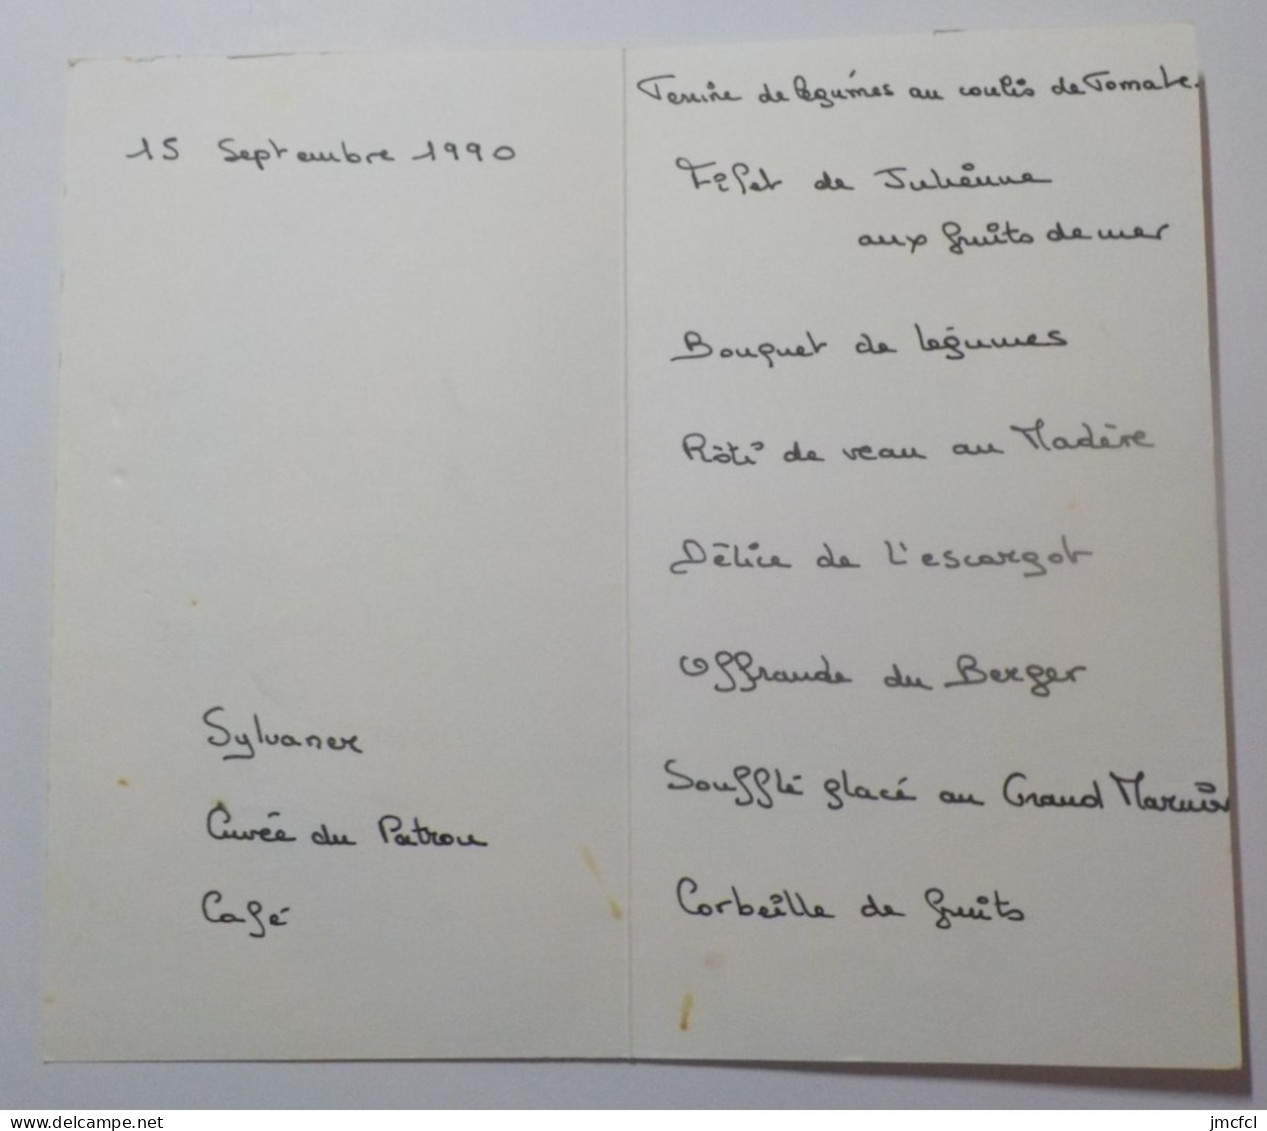 15 Septembre 1990
Sylvaner
Cuvée du Patron
Café
Terrine de légumes au coulis de Tomate.
Filet de Julienne
aux fruits de mer
Bouquet de légumes
Rôti de veau au Madère
Délice de l'escargot
Offrande du Berger
Soufflé glacé au Grand Marnier
Corbeille de fruits
www.delcampe.net
jmcfcl